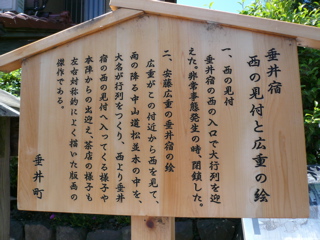 垂井宿
西の見付と広重の絵
一、西の見付
垂井宿の西の入口で大行列を迎
えた。非常事態発生の時、閉鎖した。
二、安藤広重の垂井宿の絵
広重がこの付近から西を見て、
雨の降る中山道松並木の中を、
大名が行列をつくり、西より垂井
宿の西の見付へ入ってくる様子や
本陣からの出迎え、茶店の様子も
左右対称的によく描いた版画の
傑作である。
垂井町